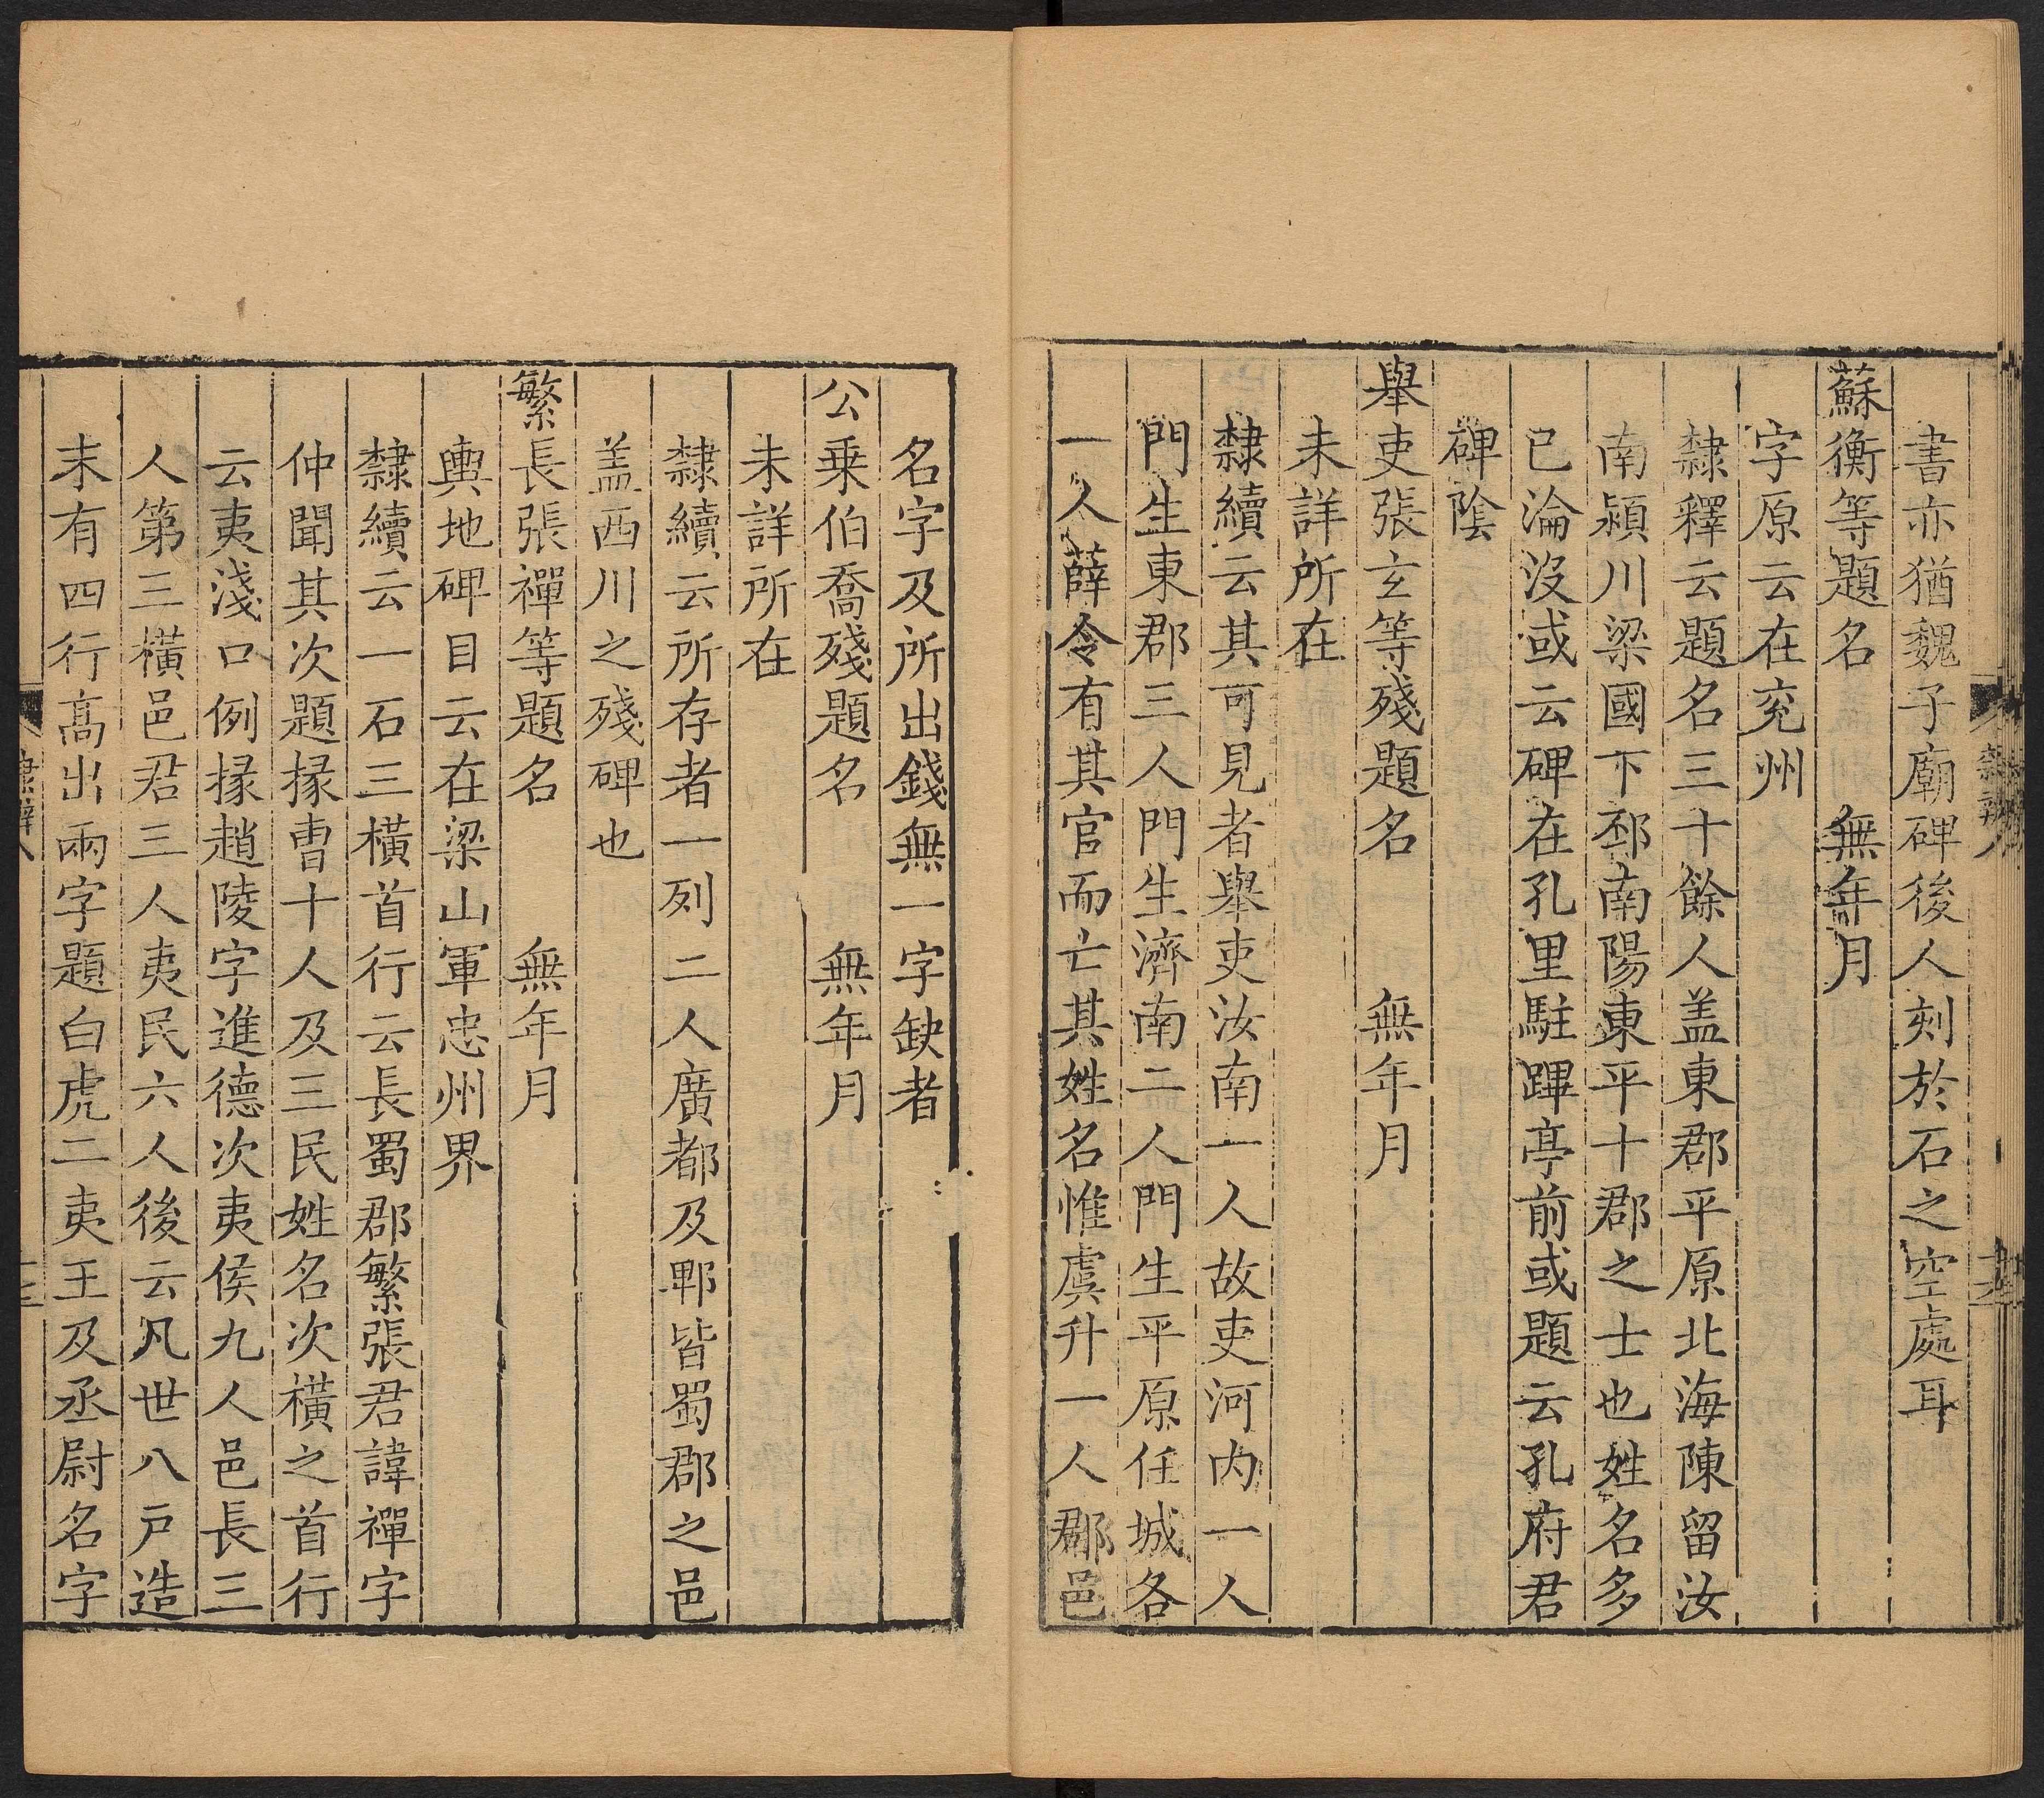 書亦猶魏子廟碑後人刻於石之空處耳
蘇衡等題名　無年月
字原云在兖州
隸釋云題名三十餘人盖東郡平原北海陳留汝
南潁川梁國下邳南陽東平十郡之士也姓名多
已淪沒或云碑在孔里駐蹕亭前或題云孔府君
碑陰
舉吏張玄等殘題名　無年月
未詳所在
隸續云其可見者舉吏汝南一人故吏河内一人
門生東郡三人門生濟南二人門生平原任城各
一人薛令有其官而亡其姓名惟虞升一人郡邑
名字及所出錢無一字缺者
公乗伯喬殘題名　無年月
未詳所在
隸續云所存者一列二人廣都及郫皆蜀郡之邑
盖西川之殘碑也
繁長張禪等題名　無年月
輿地碑目云在梁山軍忠州界
隸續云一石三橫首行云長蜀郡繁張君諱禪字
仲聞其次題掾曹十人及三民姓名次橫之首行
云夷淺口例掾趙陵字進德次夷侯九人邑長三
人第三橫邑君三人夷民六人後云凡世八戸造
末有四行髙出兩字題白虎二夷王及丞尉名字
隸辨八